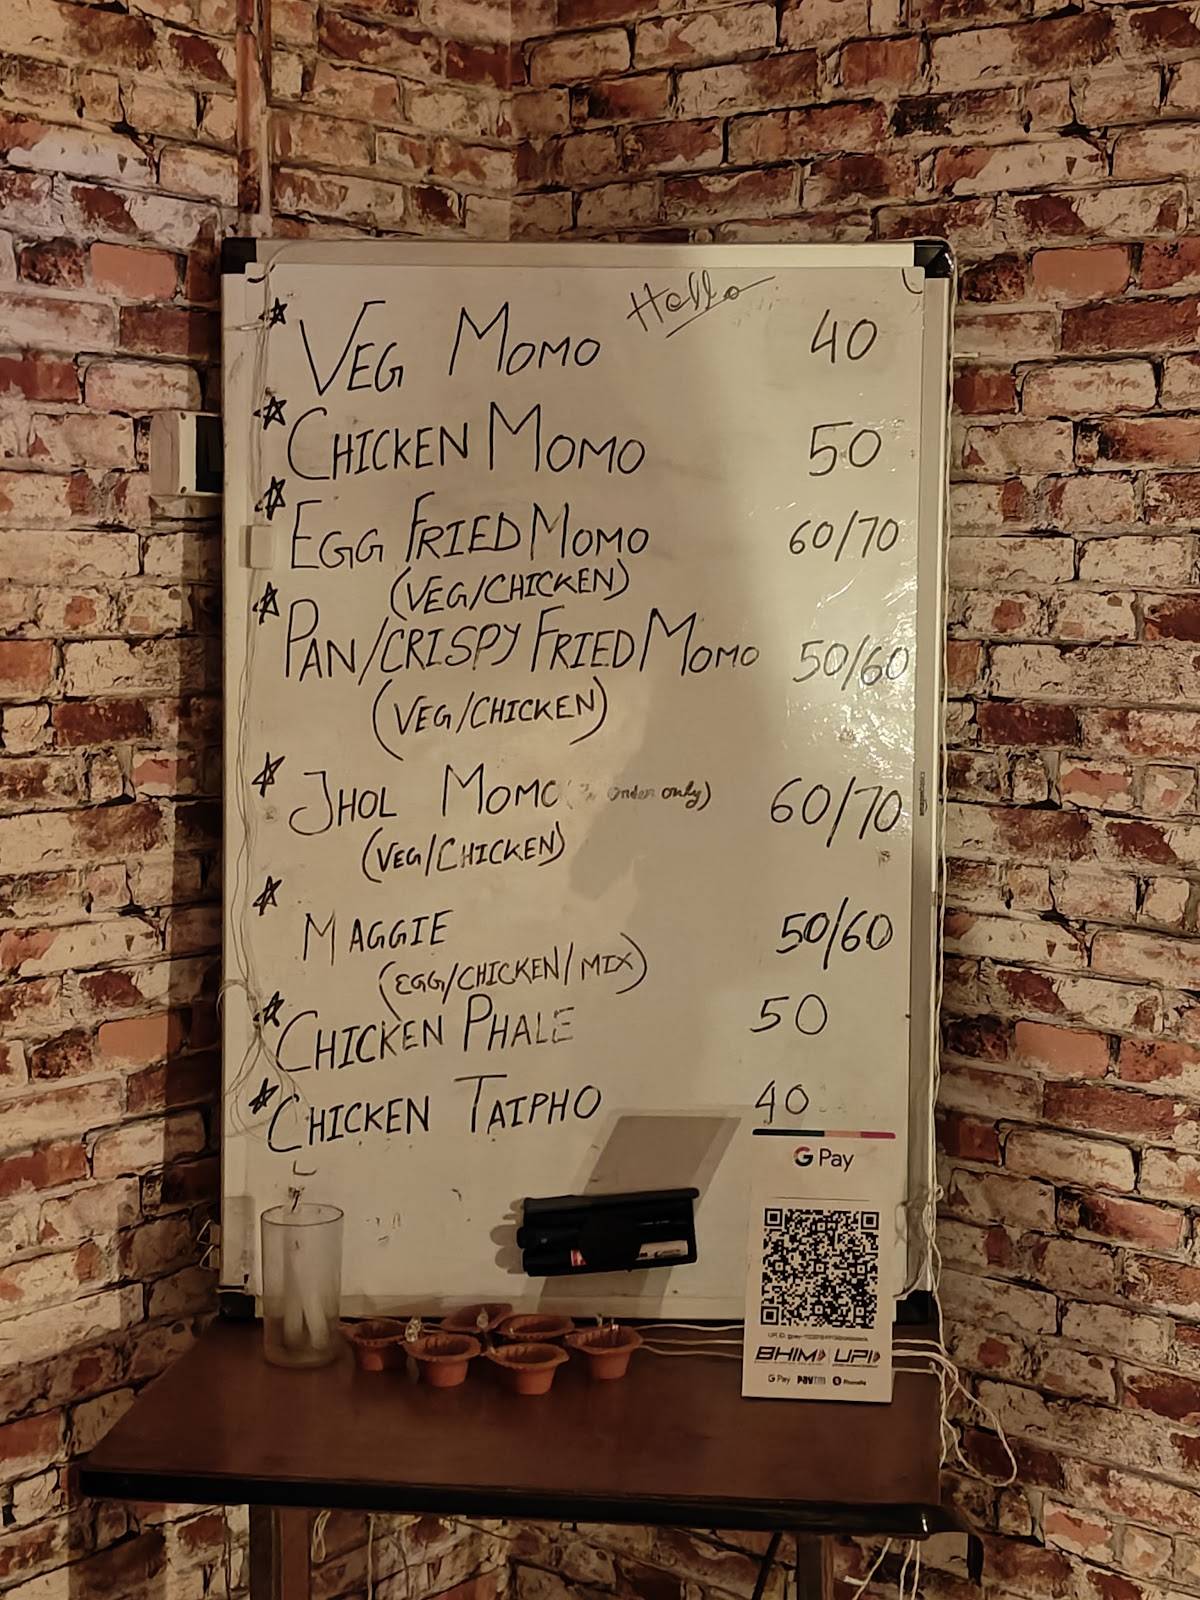 Hello
VEG MOMO 40
CHICKEN MOMO 50
EGG FRIED MOMO 60/70
(VEG/CHICKEN)
PAN/CRISPY FRIED MOMO 50/60
(VEG/CHICKEN)
JHOL MOMO (order only) 60/70
(VEG/CHICKEN)
MAGGIE 50/60
(EGG/CHICKEN/MIX)
CHICKEN PHALE 50
CHICKEN TAIPHO 40
G Pay
BHIM UPI
G Pay Paytm PhonePe